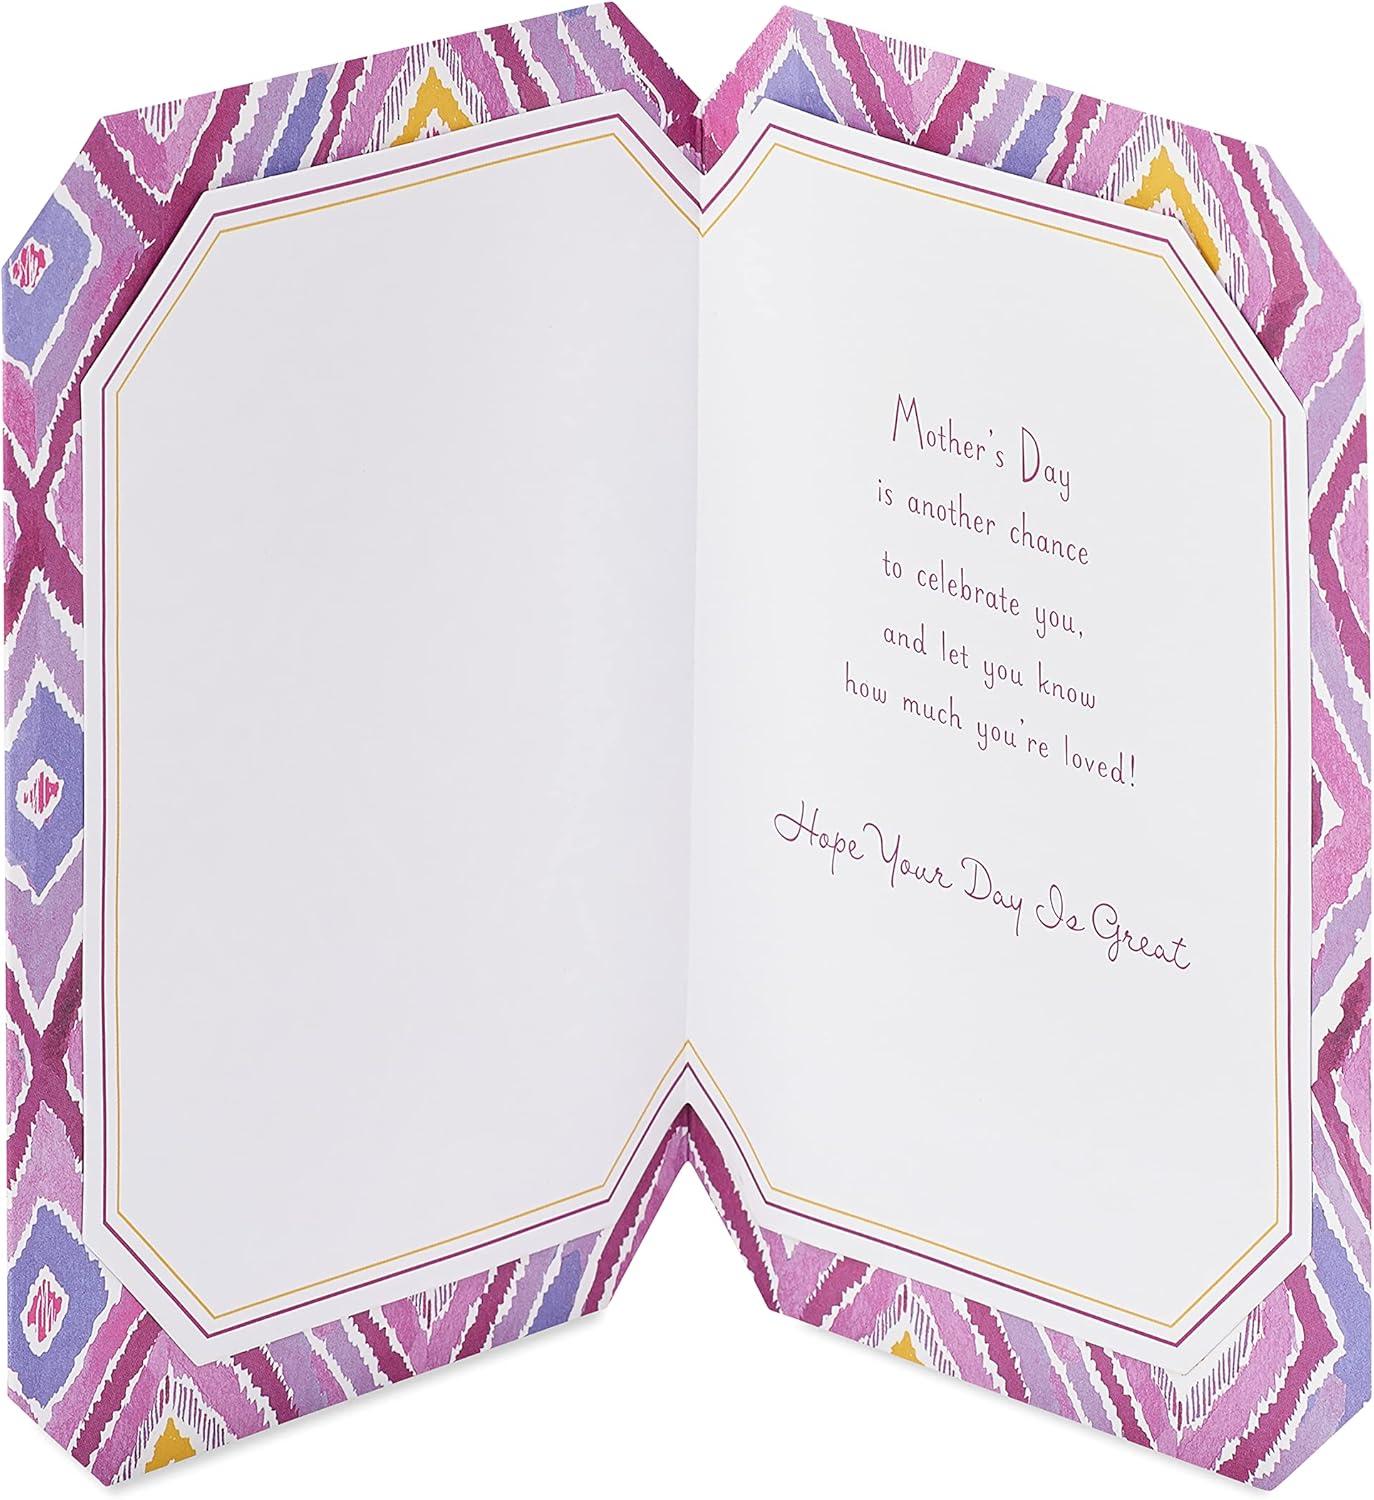 Mother's Day
is another chance
to celebrate you,
and let you know
how much you're loved!
Hope Your Day Is Great